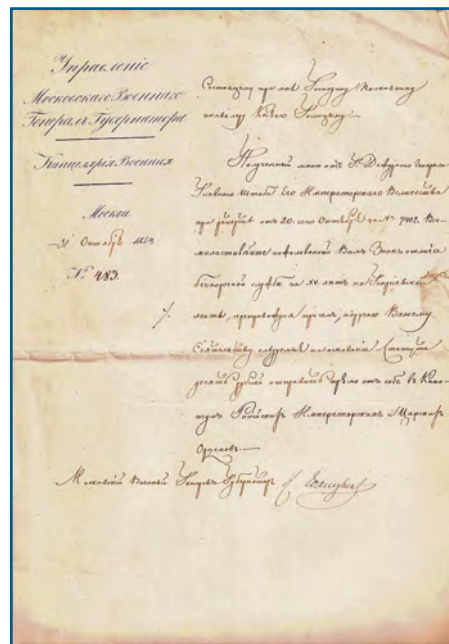 Управленіе
Московскаго Военнаго
Генералъ Губернатора.
Канцелярія Военная
Москва
31 Октября
№ 483.
Состоящему при мнѣ Господину Полковнику
Князю
Полученный мною отъ Г. Дежурнаго Генерала
Главнаго Штаба Его Императорскаго Величества
при отъ 20 сего Октября за № 7402. Все-
милостивѣйше пожалованный Вамъ Знакъ отличія
безпорочной службы за XV. лѣтъ на Георгіевской
лентѣ, препровождая при семъ, Вашему
Сіятельству на основаніи Статута
десять рублей отправить отъ себя въ Капи-
тулъ Россійскихъ Императорскихъ и Царскихъ
Орденовъ.
Московскій Военный Генералъ Губернаторъ